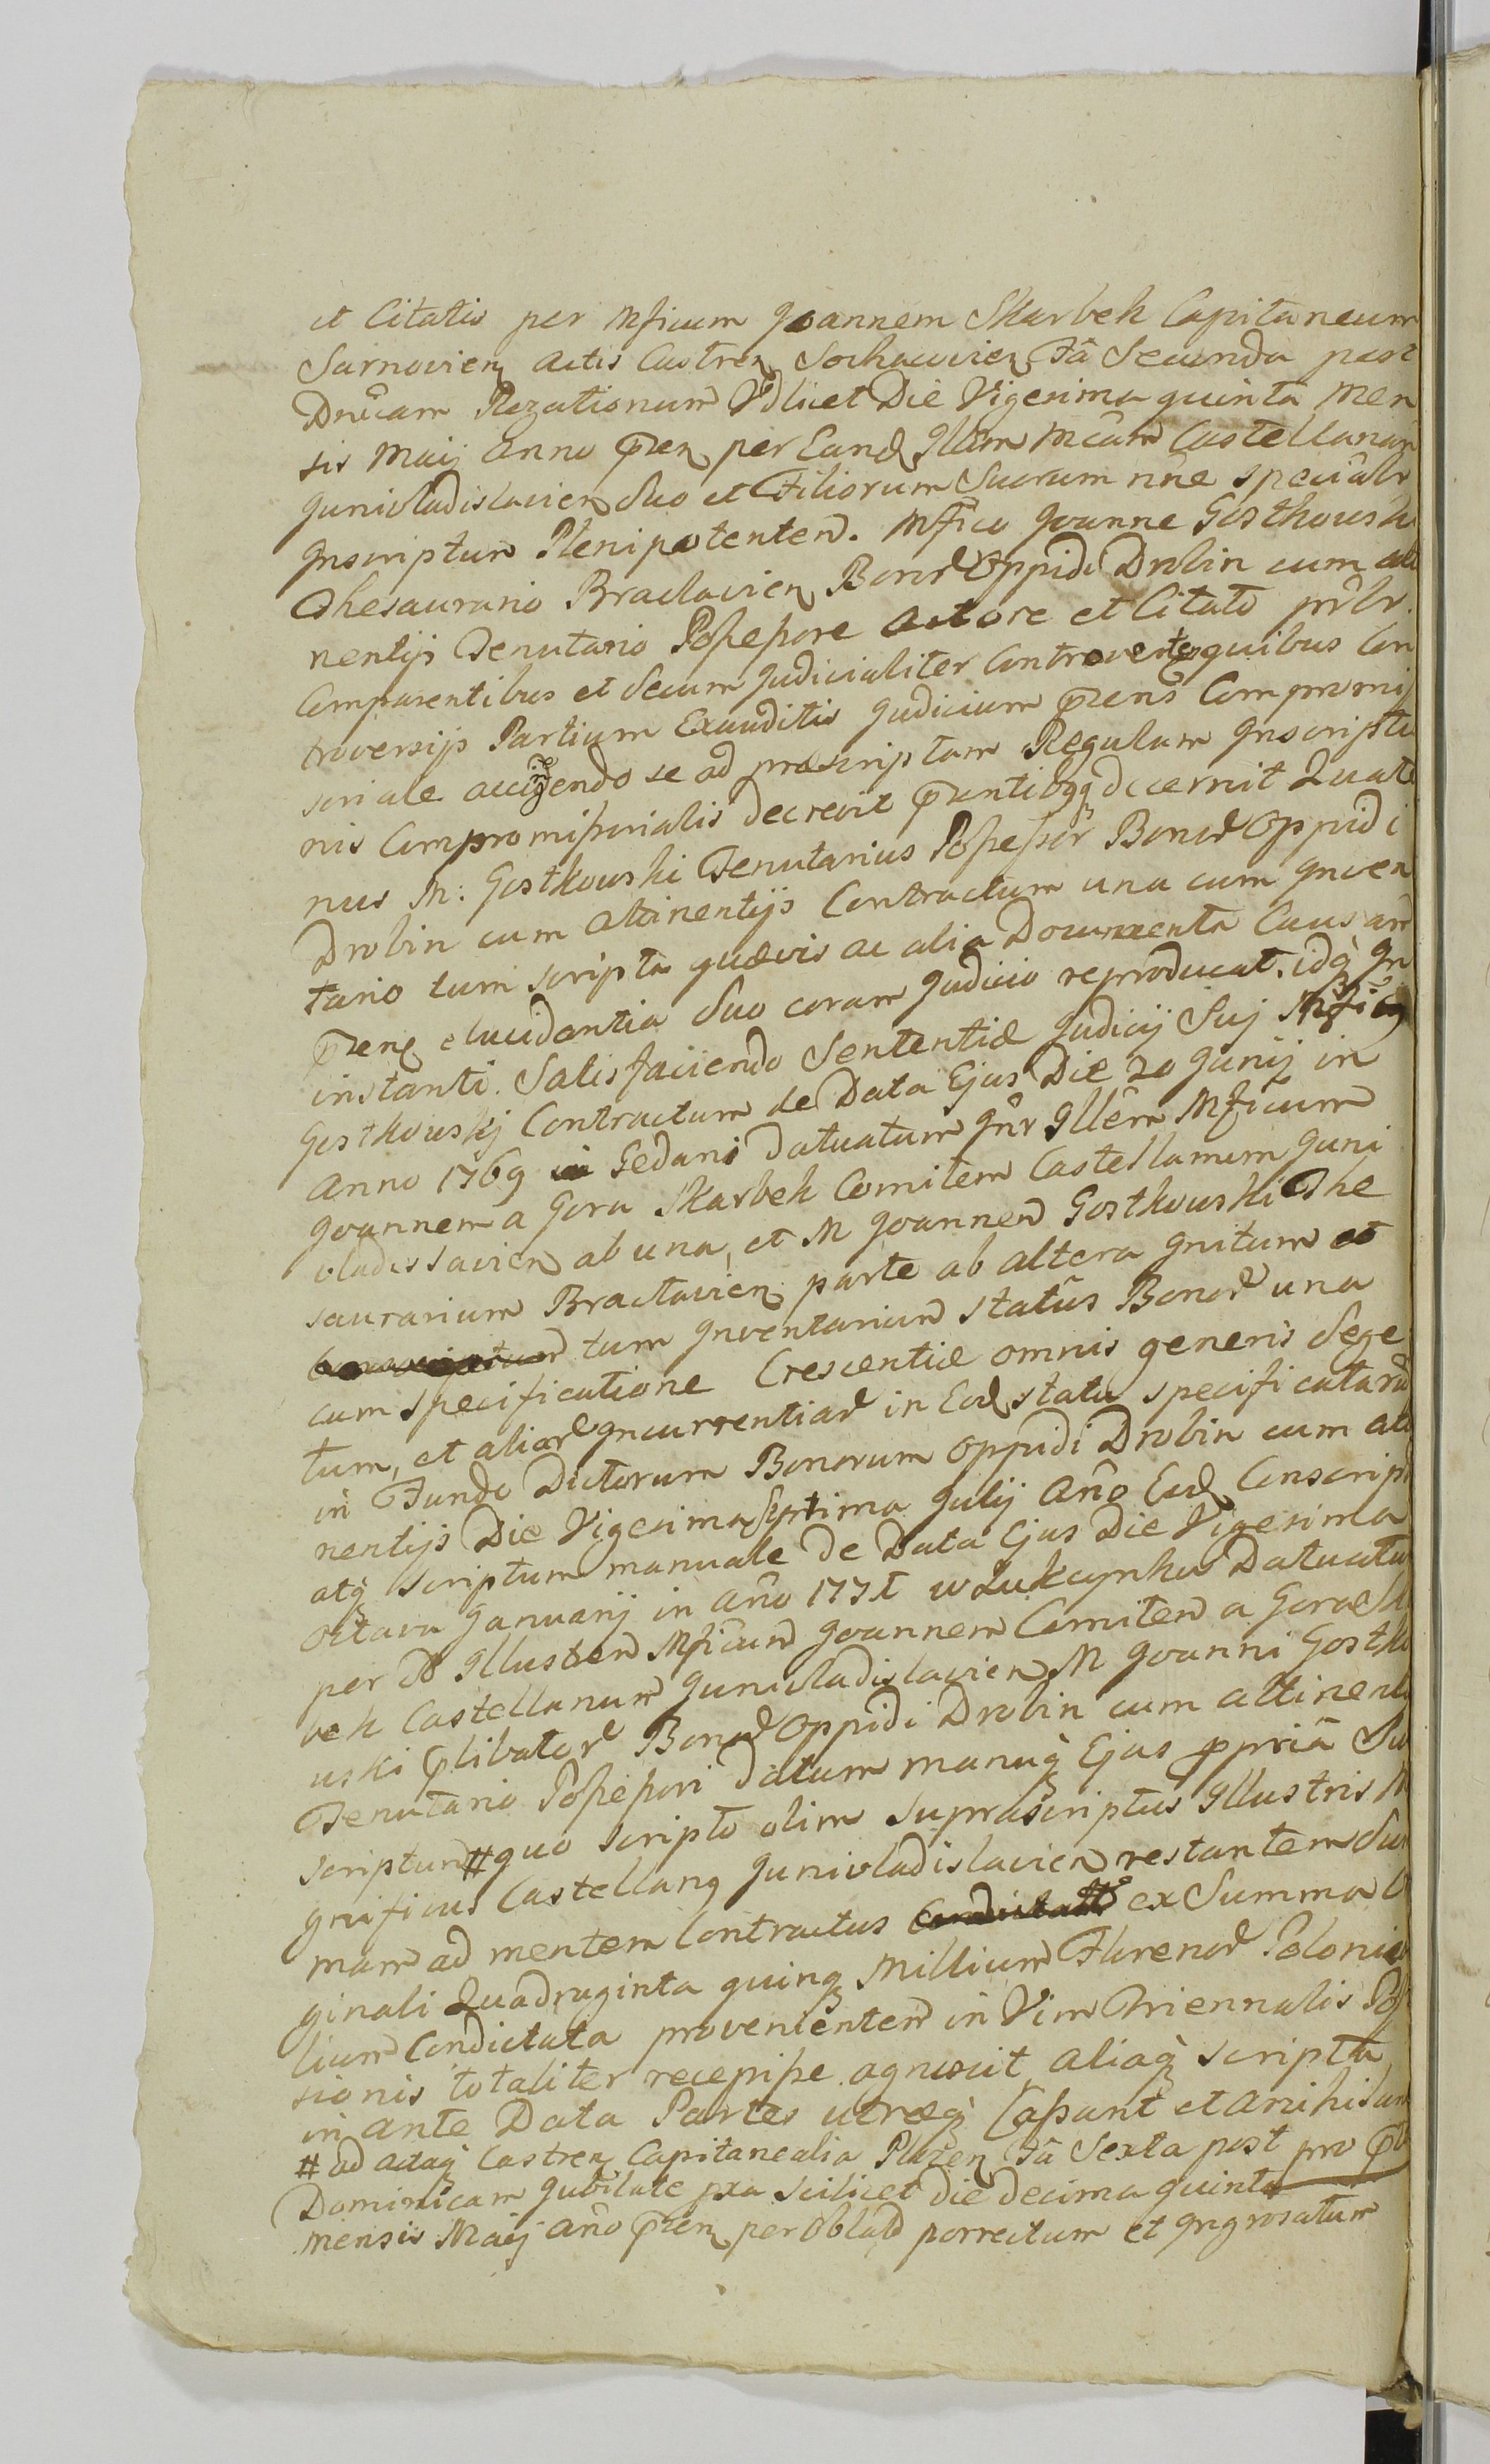 et Citatis per Mficum Joannem Skarbek Capitaneum
Sarnovien Actis Castren Sochacovien Fâ Secunda post
Dnicam Rogationum Vdlicet Die Vigesima quinta Men
sis Maij Anno p̄ten per Eand Illām Mcām Castellanam
Junivladislavien Suo et Filiorum Suorum nn̄e specialr
Inscriptum Plenipotentem. Mfico Joanne Gostkowski
Thesaurario Braclavien Bonor Oppidi Drobin cum atti
nentijs Tenutario Possessore Actore et Citato prlr.
Comparentibus et Secum Judicialiter Controvertēn quibus Con
troversijs Partium Exauditis Judicium p̄tens Compromis
soriale accingendo se ad præscriptam Regulam Inscriptio
nis Compromissorialis decrevit p̄ntibqq decernit Quate
nus M: Gostkowski Tenutarius Possessor Bonor Oppidi
Drobin cum Attinentijs Contractum una cum Inven
tario tum scripta quævis ac alia Documenta Causam
p̄ten elucidantia Suo coram Judicio reproducat. idq̀ In
instanti. Satisfaciendo Sententiæ Judicij Suj Mficus
Gostkowskj Contractum de Data Ejus Die 20 Junij in
Anno 1769 Gedani datuatum Intr Illem Mficum
Joannem a Gora Skarbek Comitem Castellanum Juni
vladislavien ab una, et M Joannem Gostkowski The
saurarium Braclavien parte ab altera Initum
tum Inventarium statûs Bonor una
cum specificatione Crescentiæ omnis generis Sege
tum, et aliar Incurrentiar in Eod statu specificatarū
in Fundo Dictorum Bonorum Oppidi Drobin cum atti
nentijs Die Vigesima Septima Julij Año Eod Conscript
atq̀ scriptum manuale de Data Ejus Die Vigesima
Octava Januarij in Año 1771 w Lukcynku Datuatu
per Illustrem Mficum Joannem Comitem a Gora Sk
bek Castellanum Junivladislavien M Joanni Gostko
wski p̄libator Bonor Oppidi Drobin cum attinent
Tenutario Possessori datum manuq̀ Ejus ppriā Su
scriptum # quo scripto olim Suprascriptus Illustris M
gnificus Castellanq Junivladislavien restantem Sum
mam ad mentem Contractus ex Summa O
ginali Quadraginta quinq Millium Florenor Polonica
lium Condictata provenientem in Vim Triennalis Pos
sionis totaliter recepisse agnoscit, aliaq̀ scripta
in ante Data Partes utræq̀ Cassant et Anihilan
# ad actaq̀ Castren Capitanealia Plocen Fâ Sexta post pro p̄
Dominicam Jubilate pxa scilicet die decima quinta
mensis Maij Año p̄ten per Oblatā porrectum et Ingrosatum